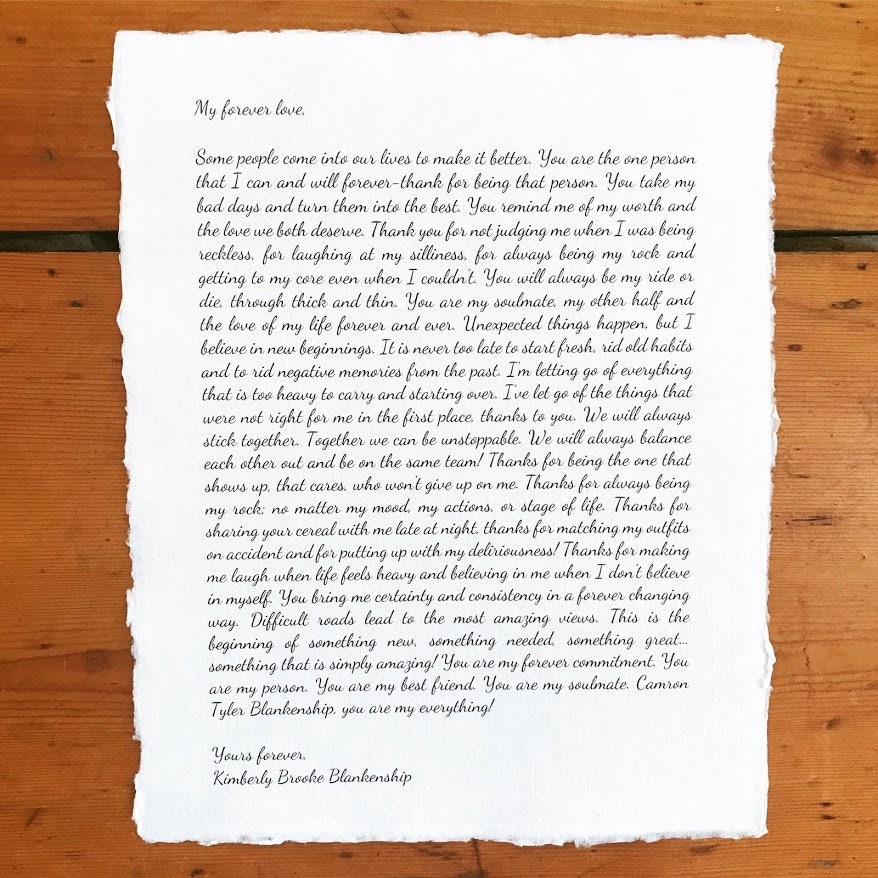 My forever love,
Some people come into our lives to make it better. You are the one person
that I can and will forever-thank for being that person. You take my
bad days and turn them into the best. You remind me of my worth and
the love we both deserve. Thank you for not judging me when I was being
reckless, for laughing at my silliness, for always being my rock and
getting to my core even when I couldn't. You will always be my ride or
die, through thick and thin. You are my soulmate, my other half and
the love of my life forever and ever. Unexpected things happen, but I
believe in new beginnings. It is never too late to start fresh, rid old habits
and to rid negative memories from the past. I'm letting go of everything
that is too heavy to carry and starting over. I've let go of the things that
were not right for me in the first place, thanks to you. We will always
stick together. Together we can be unstoppable. We will always balance
each other out and be on the same team! Thanks for being the one that
shows up, that cares, who won't give up on me. Thanks for always being
my rock; no matter my mood, my actions, or stage of life. Thanks for
sharing your cereal with me late at night, thanks for matching my outfits
on accident and for putting up with my deliriousness! Thanks for making
me laugh when life feels heavy and believing in me when I don't believe
in myself. You bring me certainty and consistency in a forever changing
way. Difficult roads lead to the most amazing views. This is the
beginning of something new, something needed, something great...
something that is simply amazing! You are my forever commitment. You
are my person. You are my best friend. You are my soulmate. Camron
Tyler Blankenship, you are my everything!
Yours forever,
Kimberly Brooke Blankenship